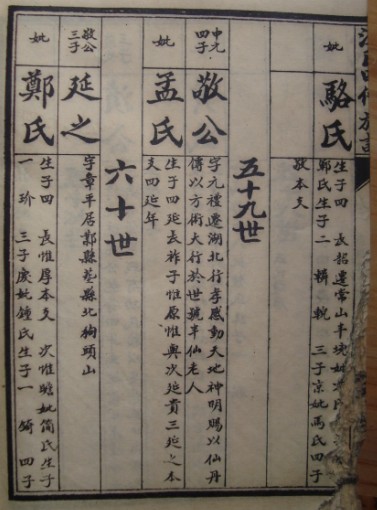 妣
駱氏
生子四 長招遷常山半
鄭氏生子二 輯 輗 三子凉妣馮氏四子
敬本夂
五十九世
申元
四子
敬公
字元禮遷湖北行孝感動天地神明賜以仙丹
傳以方術大行於世號半仙老人
妣
孟氏
生子四延長祚子惟原惟輿次延貴三延之本
支四延年
六十世
敬公
三子
延之
字章平居鄞縣慈縣北狗頭山
妣
鄭氏
生子四 長惟厚本夂 次惟瞻妣簡氏生子
一 玠 三子慶妣鍾氏生子一 錡 四子